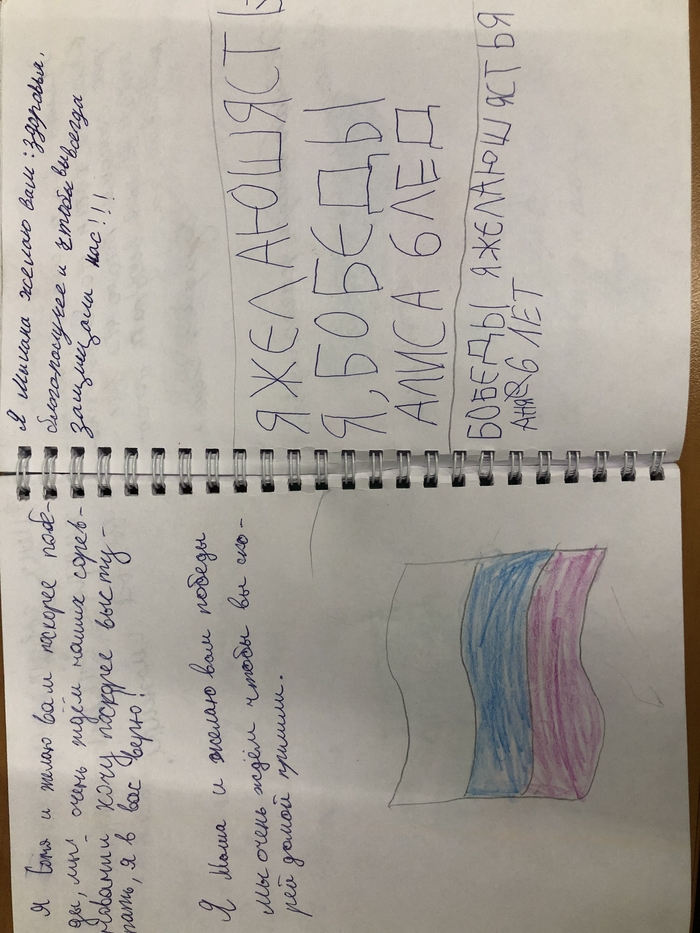 Я и желаю вам поскорее побе-
ды, мы очень ждём наших сорев-
нований хочу поскорее высту-
пать, я в вас верю!
Я Маша и желаю вам победы
мы очень ждём чтобы вы ско-
рей домой пришли.
Я Милана желаю вам: здоровья,
благополучее и чтобы вы всегда
защищали нас!!!
ЯЖЕЛАЮШЯСТЬ
Я, БОБЕДЫ
АЛИСА 6 ЛЕД
БОБЕДЫ ЯЖЕЛАЮШЯСТЬЯ
АНЯ 6 ЛЕТ